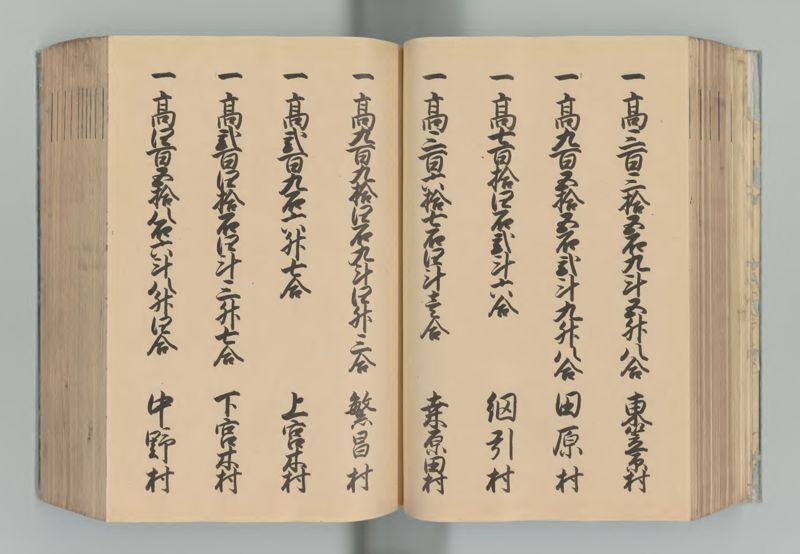 一 高三百三拾五石九斗五升八合 東笠原村
一 高九百五拾五石弐斗九升八合 田原村
一 高七百拾四石弐斗六合 網引村
一 高三百六拾七石四斗壱合 桑原田村
一 高九百九拾四石九斗四升三合 繁昌村
一 高弐百九石六升七合 上宮木村
一 高弐百四拾石四斗三升七合 下宮木村
一 高四百五拾八石六斗八升四合 中野村